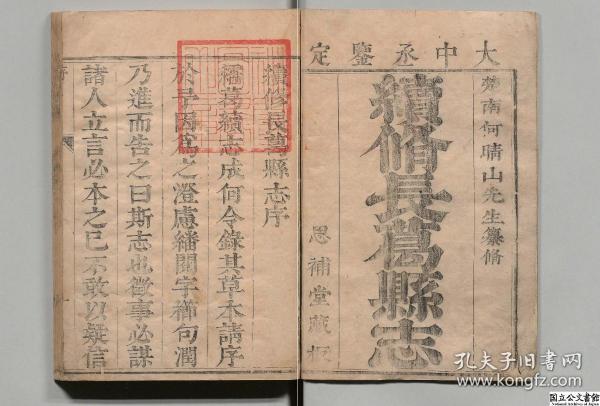 大中丞鑒定
楚南何晴山先生纂修
續脩長葛縣志
思補堂藏板
續修長葛縣志序
繙葛續志成何令錄其草本請序
於予因爲之澄慮繙閱字櫛句潤
乃進而告之曰斯志也徵事必謀
諸人立言必本之己不敢以疑信
孔夫子旧书网
www.kongfz.com
国立公文書館
National Archives of Japan